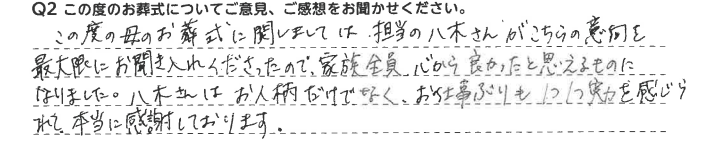 Q2 この度のお葬式についてご意見、ご感想をお聞かせください。
この度の母のお葬式に関しましては、担当の八木さんがこちらの意向を
最大限にお聞き入れくださったので、家族全員、心から良かったと思えるものに
なりました。八木さんはお人柄だけでなく、お仕事ぶりも 1つ1つ実力を感じら
れて、本当に感謝しております。